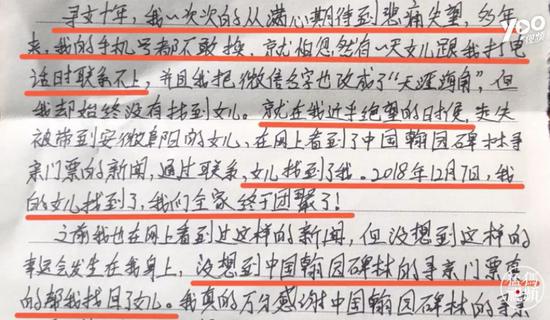 寻女十年,我一次次的从满心期待到悲痛失望,多年
来,我的手机号都不敢换,就怕忽然有一天女儿跟我打电
话时联系不上,并且我把微信名字也改成了“天涯海角”,但
我却始终没有找到女儿。就在我近乎绝望的时候,走失
被带到安徽阜阳的女儿,在网上看到了中国翰园碑林寻
亲门票的新闻,通过联系,女儿找到了我。2018年12月7日,我
的女儿找到了,我们全家终于团聚了!
之前我也在网上看到过这样的新闻,但没想到这样的
幸运会发生在我身上,没想到中国翰园碑林的寻亲门票真
的帮我找回了女儿。我真的万分感谢中国翰园碑林的寻亲